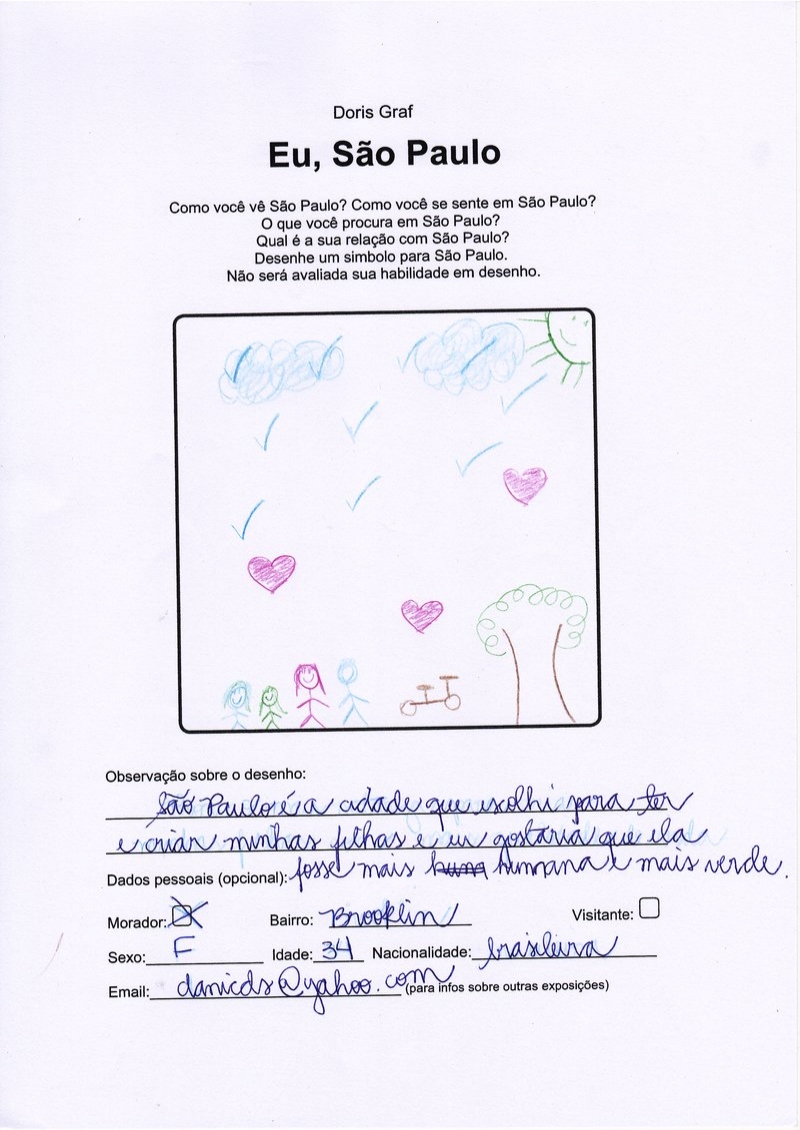 Doris Graf
Eu, São Paulo
Como você vê São Paulo? Como você se sente em São Paulo?
O que você procura em São Paulo?
Qual é a sua relação com São Paulo?
Desenhe um simbolo para São Paulo.
Não será avaliada sua habilidade em desenho.
Observação sobre o desenho:
São Paulo é a cidade que escolhi para ter
e criar minhas filhas e eu gostaria que ela
Dados pessoais (opcional): fosse mais humana e mais verde.
Morador: X Bairro: Brooklin Visitante:
Sexo: F Idade: 34 Nacionalidade: brasileira
Email: danicds@yahoo.com (para infos sobre outras exposições)